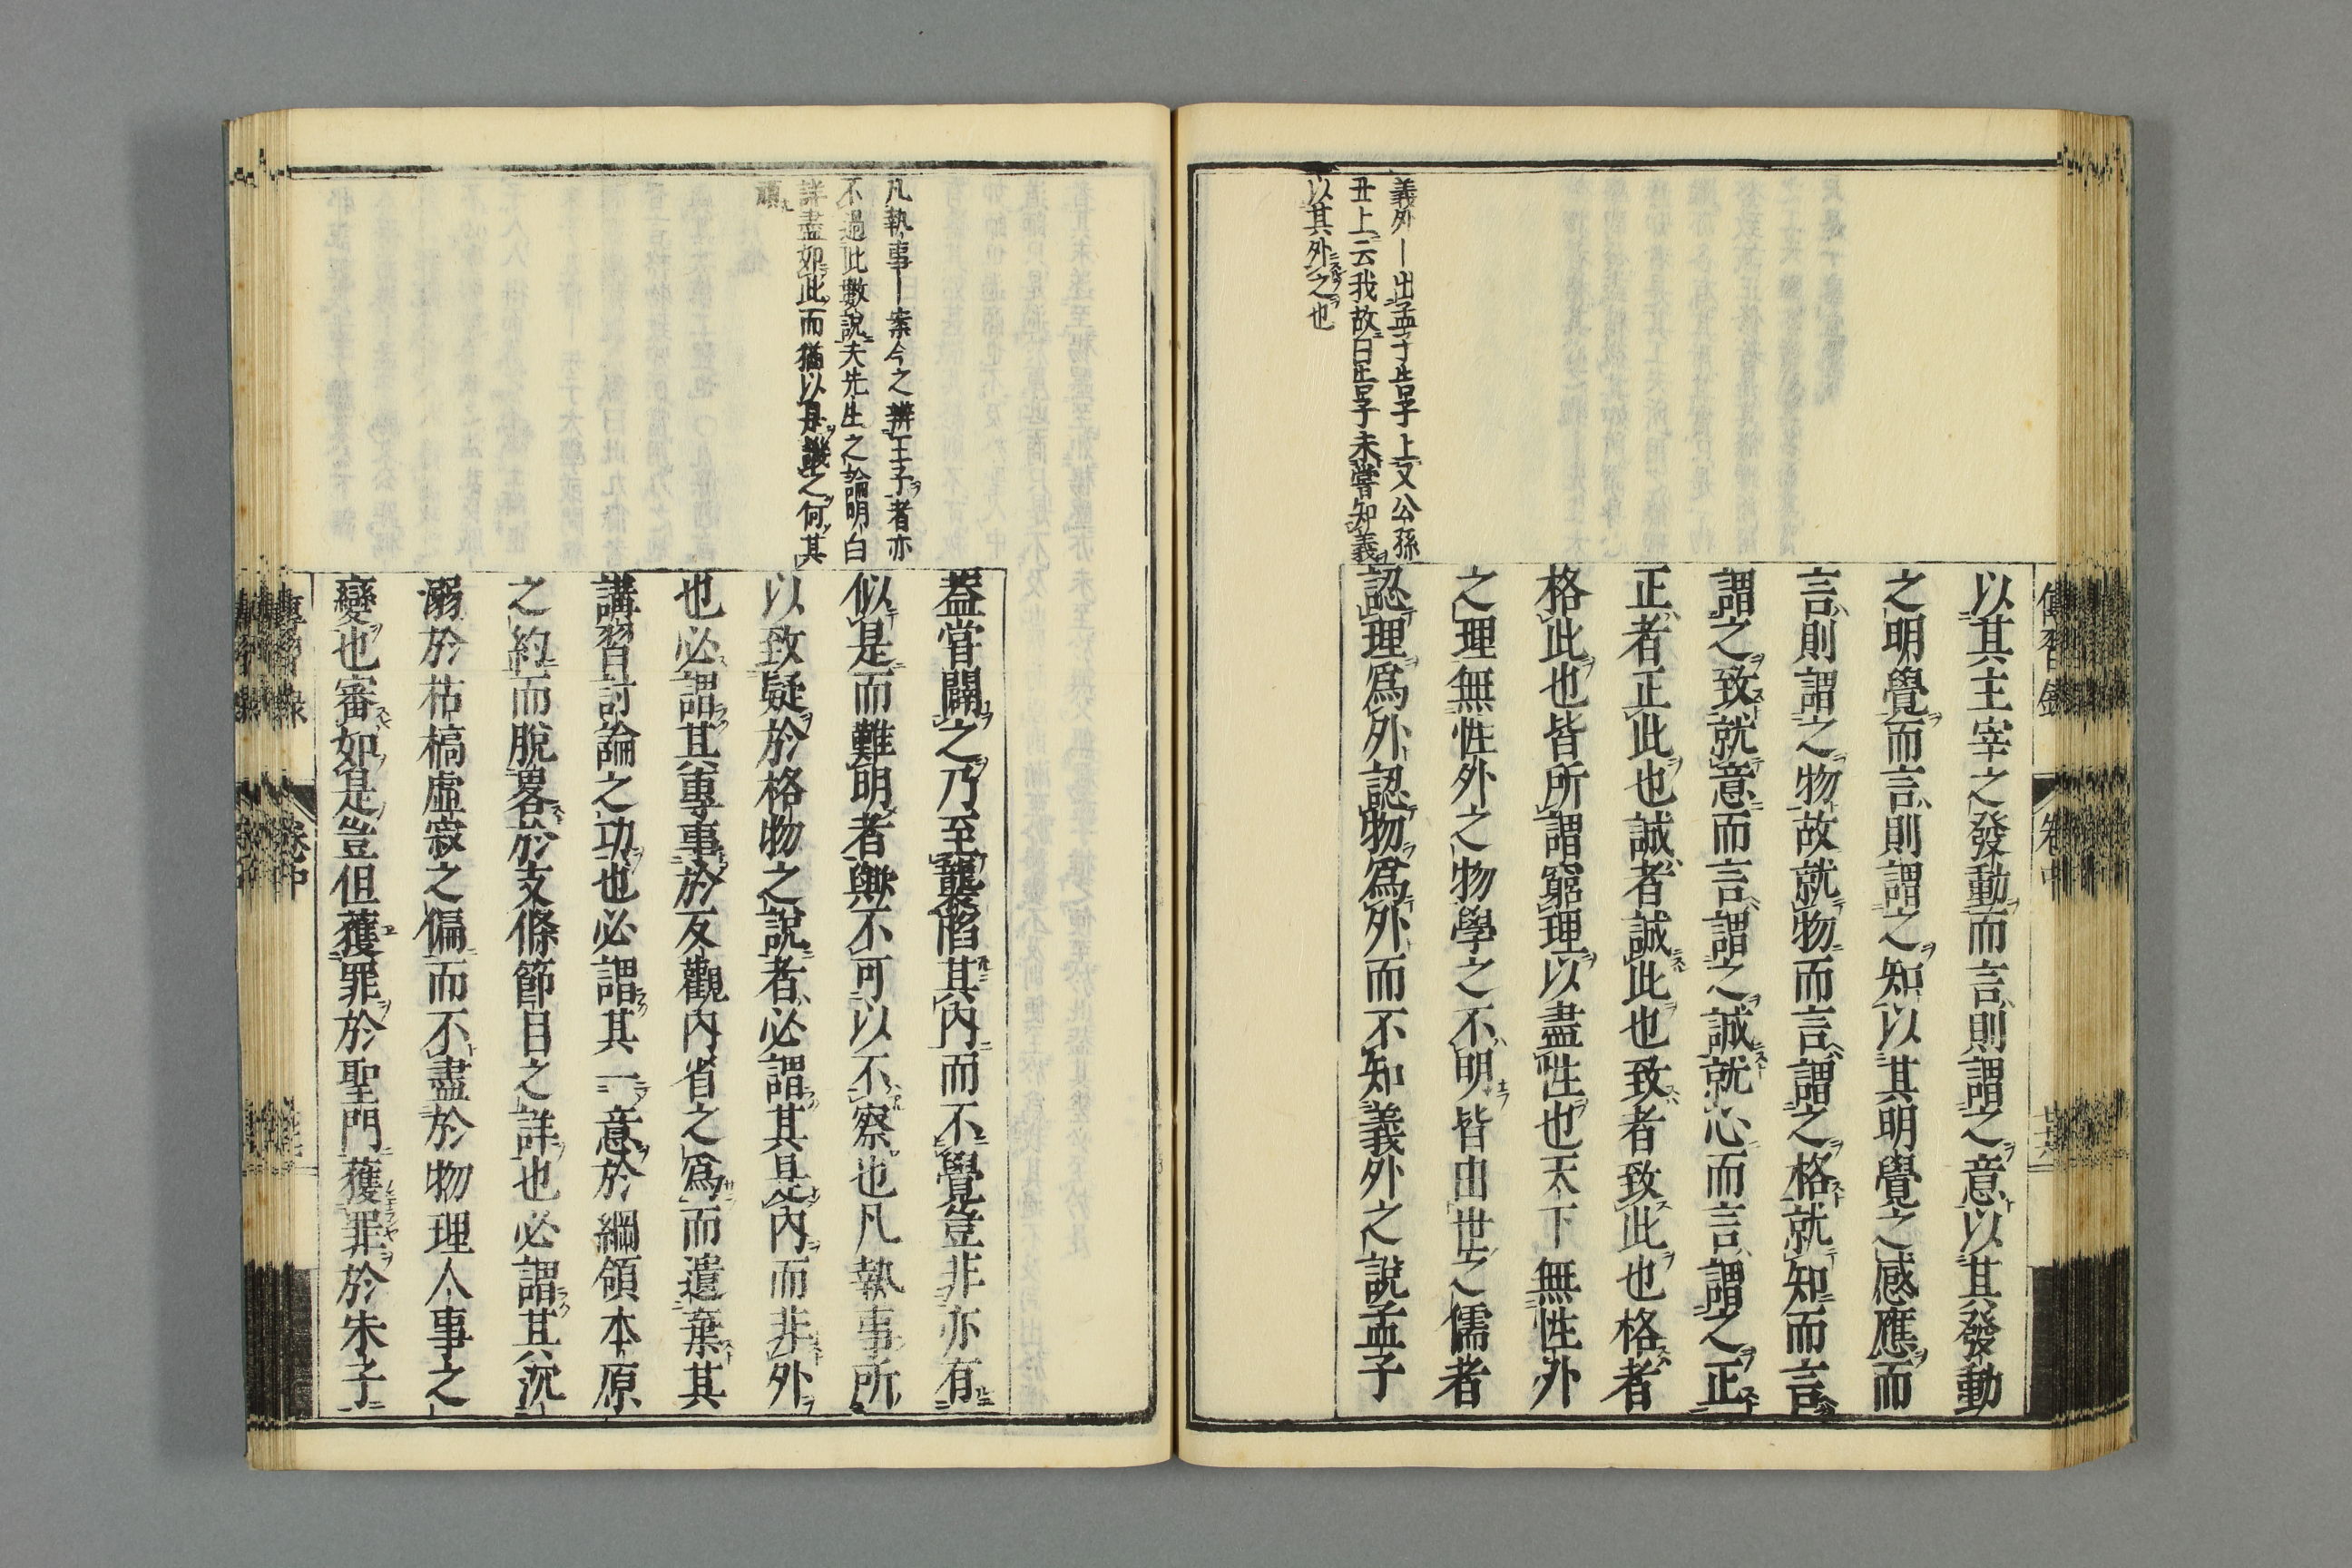 傳習錄
卷中
義外―出孟子告子上又公孫
丑上云我故曰告子未嘗知義
以其外之也
以其主宰之發動而言則謂之意以其發動
之明覺而言則謂之知以其明覺之感應而
言則謂之物故就物而言謂之格就知而言
謂之致就意而言謂之誠就心而言謂之正
正者正此也誠者誠此也致者致此也格者
格此也皆所謂窮理以盡性也天下無性外
之理無性外之物學之不明皆由世之儒者
認理爲外認物爲外而不知義外之說孟子
凡執事―案今之辨王子者亦
不過此數說夫先生之論明白
詳盡如此而猶以是議之何其
蓋嘗闢之乃至襲陷其內而不覺豈非亦有
似是而難明者與不可以不察也凡執事所
以致疑於格物之說者必謂其是內而非外
也必謂其專事於反觀內省之爲而遺棄其
講習討論之功也必謂其一意於綱領本原
之約而脫畧於支條節目之詳也必謂其沉
溺於枯槁虛寂之偏而不盡於物理人事之
變也審如是豈但獲罪於聖門獲罪於朱子
傳習錄
卷中